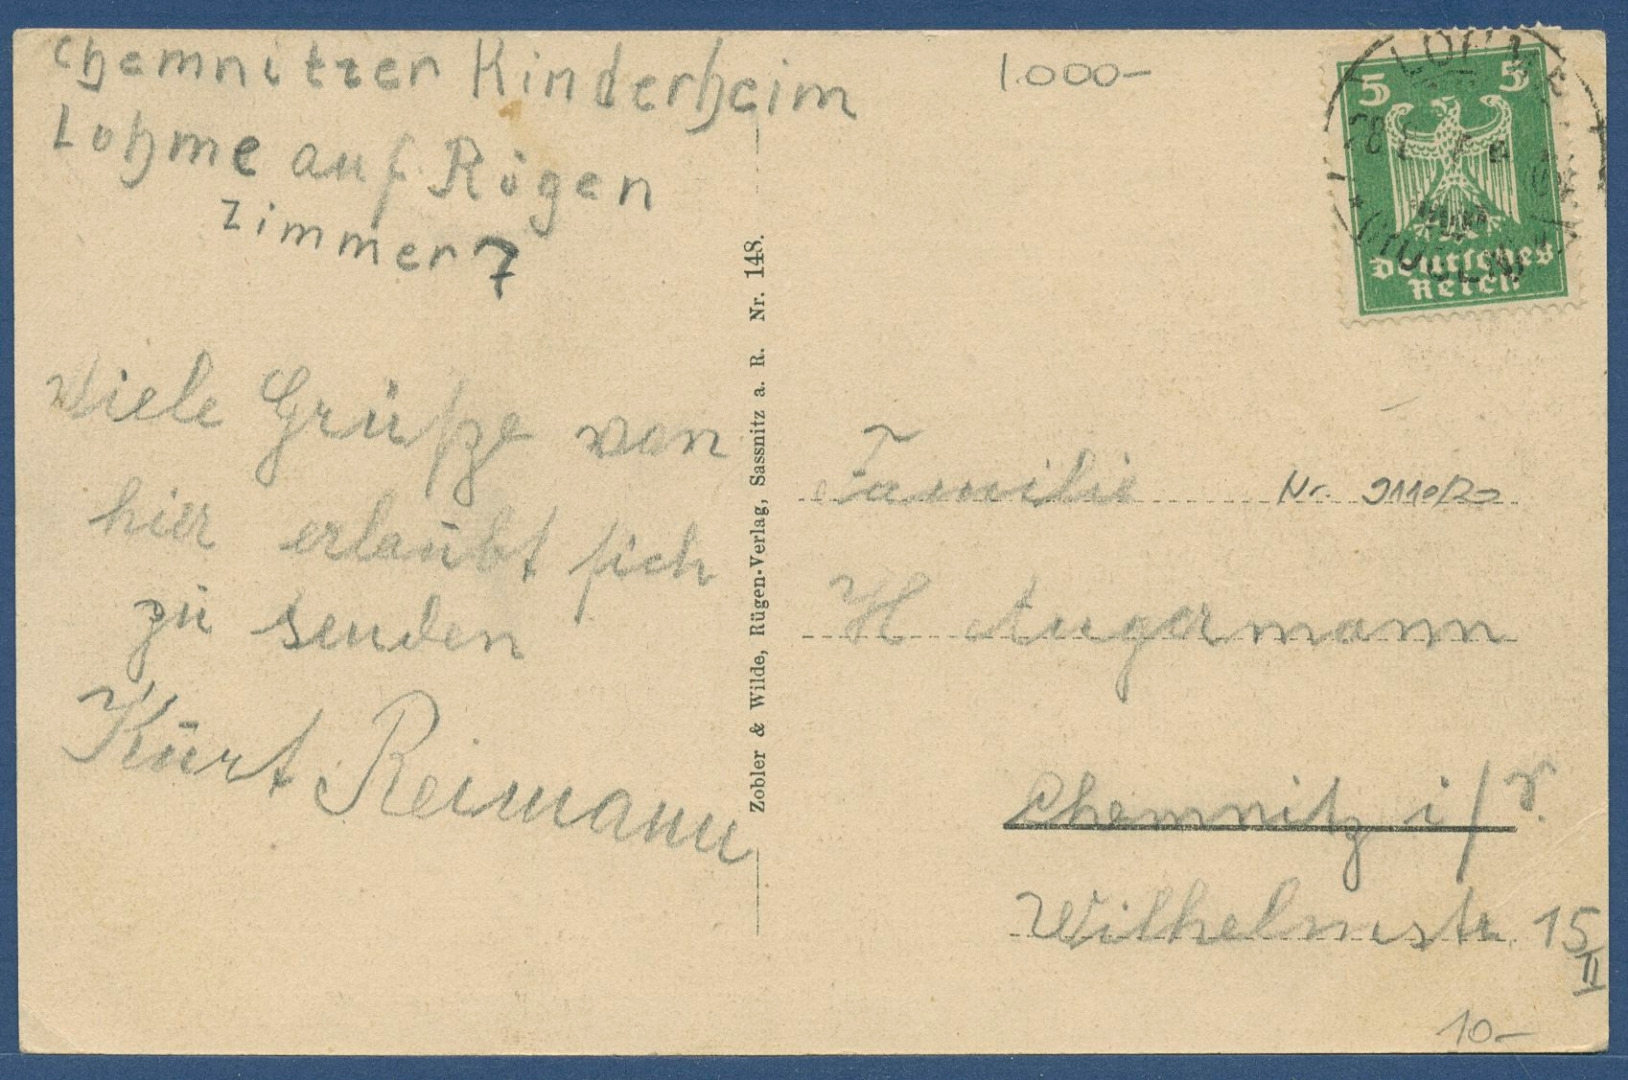 Chemnitzer Kinderheim
Lohme auf Rügen
Zimmer 7
Viele Grüße von
hier erlaubt sich
zu senden
Kurt Reimann
Zobler & Wilde, Rügen-Verlag, Sassnitz a. R. Nr. 148.
1.000-
5 5
Deutsches
Reich
LOHME
(RÜGEN)
Familie
Nr. 9110/20
H Augermann
Chemnitz i/
Wilhelmstr. 15
II
10-